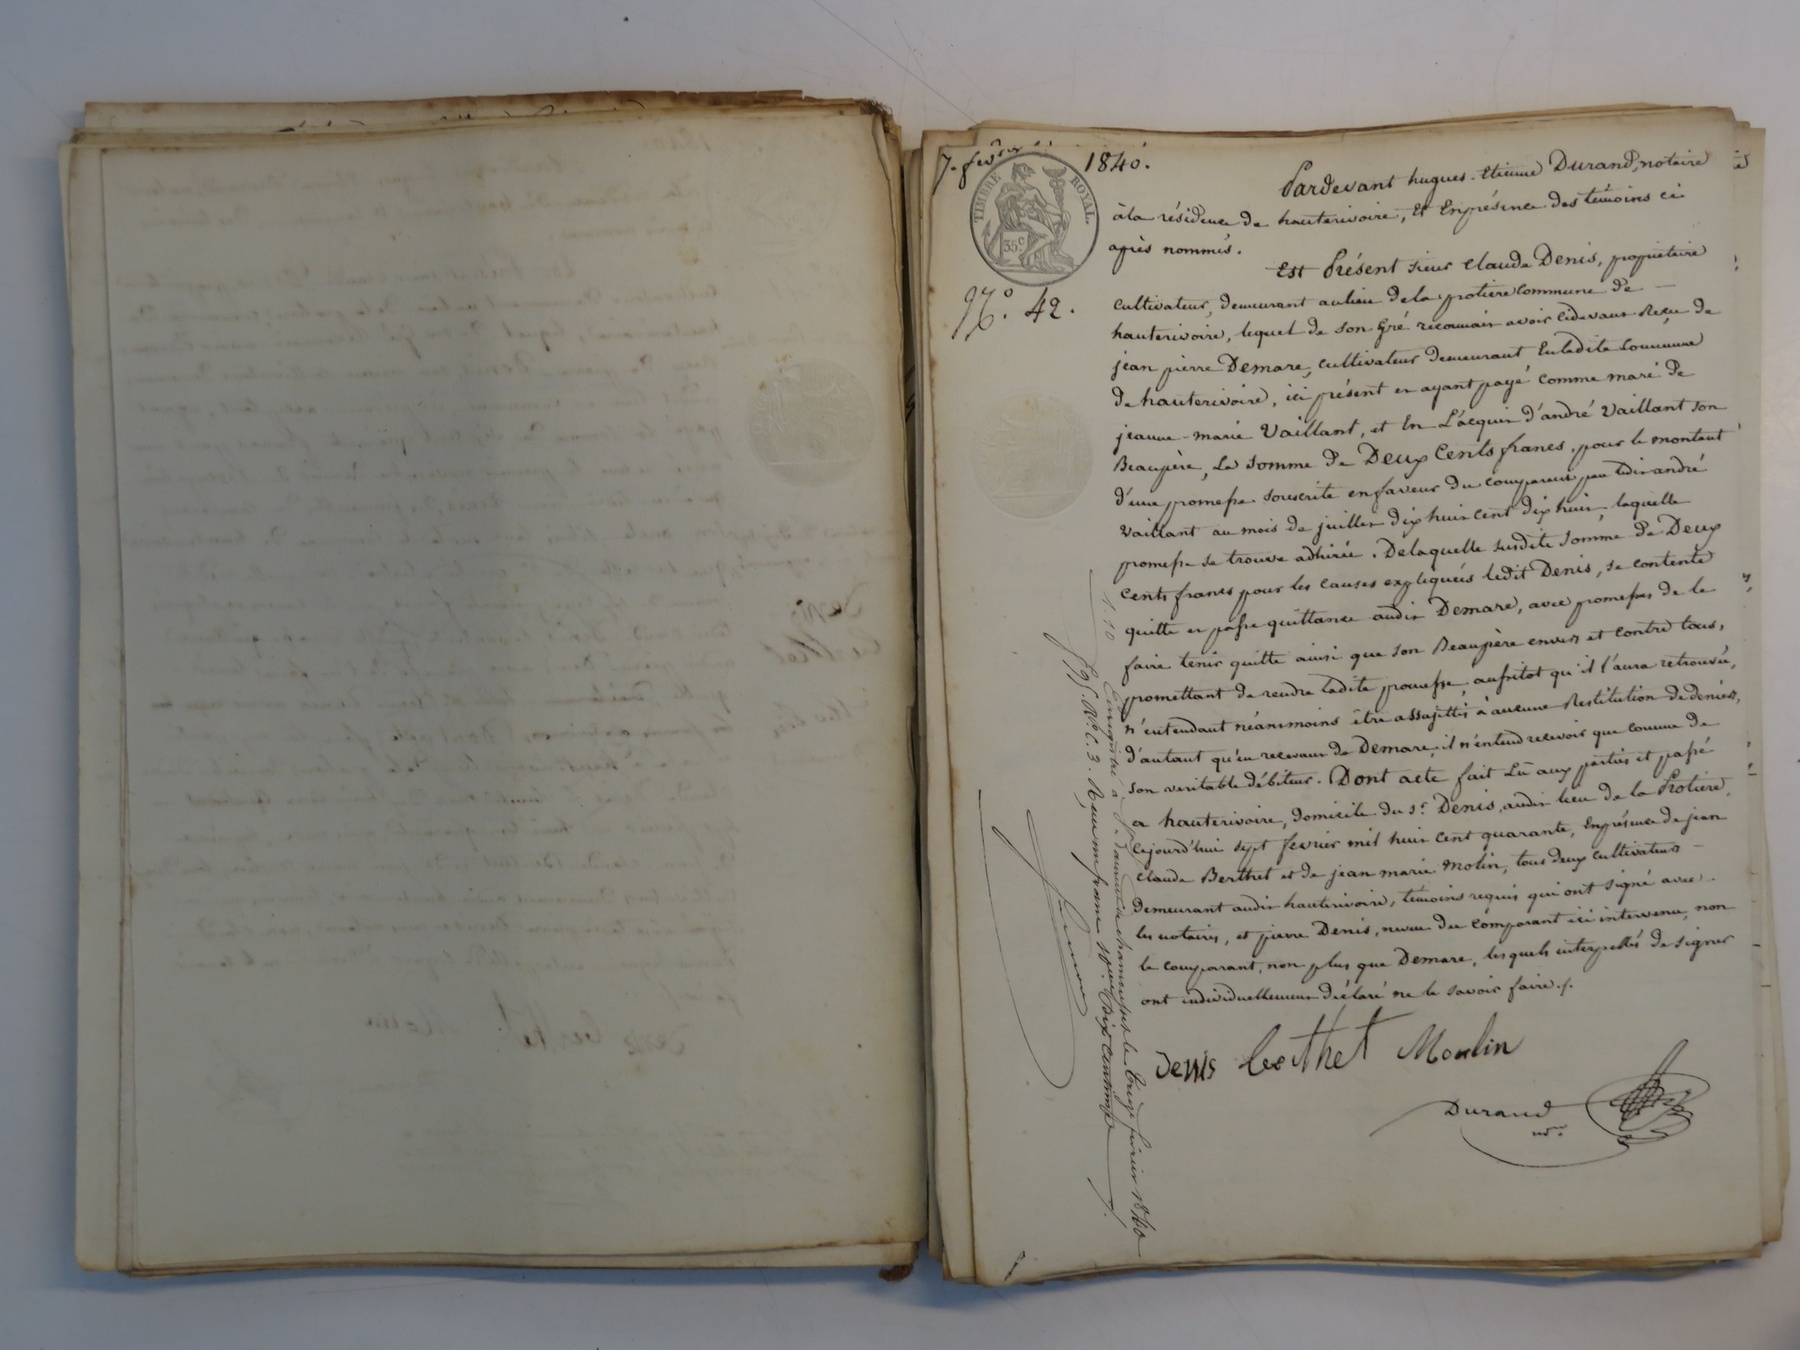 7. février 1840.
TIMBRE ROYAL
35c
N.° 42.
Pardevant hugues-Etienne Durand, notaire
à la résidence de hauterivoire, Et Enprésence des témoins ci
après nommés.
Est Présent sieur claude Denis, propriétaire
cultivateur, demeurant aulieu dela protiere commune de
hauterivoire, lequel de son Gré reconnait avoir cidevant Reçu de
jean pierre Demare, cultivateur demeurant Enladite commune
de hauterivoire, ici présent et ayant payé comme mari de
jeanne-marie Vaillant, et En L'acquit d'andré Vaillant son
Beaupère, La somme de Deux Cents francs, pour le montant
d'une promesse souscrite enfaveur du comparant par ledit andré
Vaillant au mois de juillet dix huit cent dix huit, laquelle
promesse se trouve adhirée. Delaquelle susdite somme de Deux
Cents francs pour les causes expliquées ledit Denis, se contente
quitte et passe quittance audit Demare, avec promesses de le
faire tenir quitte ainsi que son Beaupère envers et contre tous,
promettant de rendre ladite promesse, aussitot qu'il l'aura retrouvée,
n'entendant néanmoins être assujetti à aucune Restitution de deniers,
d'autant qu'en recevant de Demare, il n'entend recevoir que comme de
son veritable débiteur. Dont acte fait Lu aux parties et passé
a hauterivoire, domicile du s.r Denis, audit lieu de la Protiere,
Cejourd'hui sept février mil huit cent quarante, Enprésence de jean
claude Berthet et de jean marie Molin, tous deux cultivateurs
demeurant audit hauterivoire, témoins requis qui ont signé avec
les notaires, et pierre Denis, neveu du comparant ici intervenu, non
le comparant, non plus que Demare, lesquels interpellés de signer
ont individuellement déclaré ne le savoir faire./.
Denis Berthet Moulin
Durand
n.re
1 10
Enregistré à St. Laurent de chamousset le treize février 1840
f. 95. R.o C. 3. Reçu un franc 10.e dix centimes